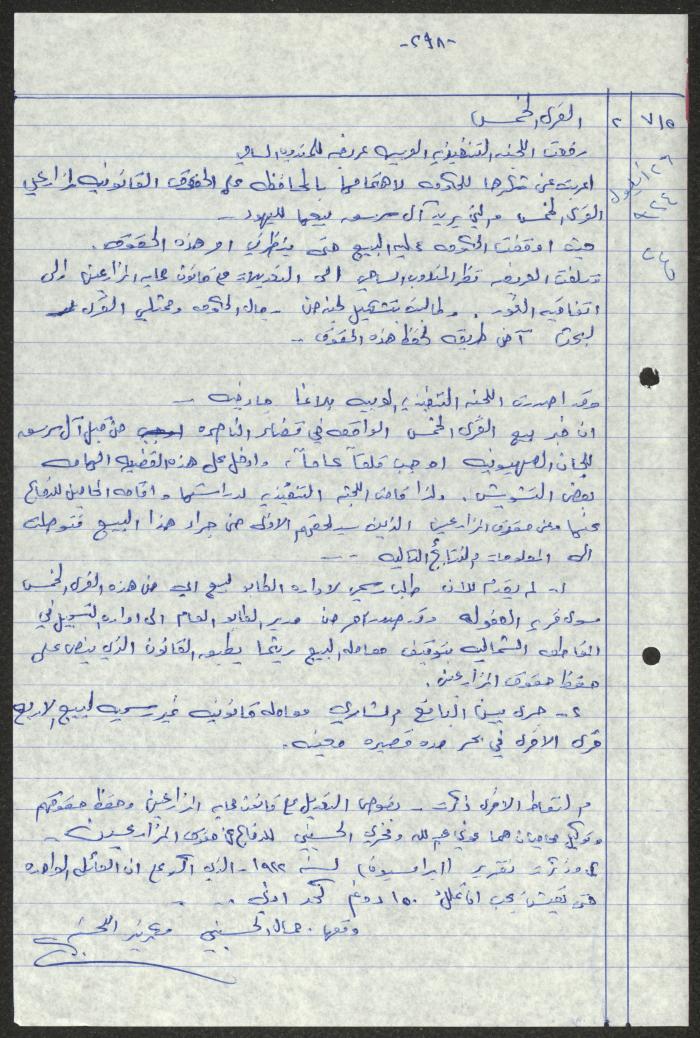 -٢٩٨-
٧/٥ ٢ القرى الخمس
٢٦ أيلول
٩٢٤
رفعت اللجنه التنفيذيه العربيه عريضه للمندوب السامي
اعربت عن شكرها للحكومه لاهتمامها بالمحافظه على الحقوق القانونيه لمزارعي
القرى الخمس والتي يريد آل سرسق بيعها لليهود -
حيث اوقفت الحكومه عمليه البيع حتى ينظر في امر هذه الحقوق .
ولفتت العريضه نظر المندوب السامي الى التعديلات على قانون حمايه المزارعين والى
اتفاقيه الغور . وطالبت بتشكيل لجنه من رجال الحكومه وممثلي القرى
لبحث آخر طريقه لحفظ هذه الحقوق --
وقد اصدرت اللجنه التنفيذيه العربيه بلاغا جاء فيه -
ان خبر بيع القرى الخمس الواقعه في قضاء الناصره من قبل آل سرسق
للجان الصهيونيه اوجب قلقاً عاماً ، وادخل على هذه القضيه الهامه
بعض التشويش . ولذا قامت اللجنه التنفيذيه لدراستها واقامه المحامين للدفاع
عنها وعن حقوق المزارعين الذين سيلحقهم الاذى من جراء هذا البيع فتوصلت
الى المعلومات والنتائج التاليه --
١- لم يقدم للآن طلب رسمي لاداره الطابو لبيع اي من هذه القرى الخمس
سوى قريه العفوله وقد صدر امر من مدير الطابو العام الى اداره التسجيل في
المقاطعه الشماليه بتوقيف معامله البيع ريثما يطبق القانون الذي ينص على
حفظ حقوق المزارعين .
٢- جرى بين البائع والشاري معامله قانونيه غير رسميه لبيع الاربع
قرى الاخرى في بحر مده قصيره معينه .
والنقاط الاخرى ذكرت - نصوص التعديل على قانون حمايه المزارعين وحفظ حقوقهم
وتوكيل محاميان هما عوني عبد الله وفخري الحسيني للدفاع عن حقوق المزارعين -
وذكرت تقرير (ابرامسون) لسنه ١٩٢٢ - الذي اكد على ان العائله الواحده
حتى تعيش يجب ان تملك ١٥٠ دونم كحد ادنى - -
وقعها . جمال الحسيني